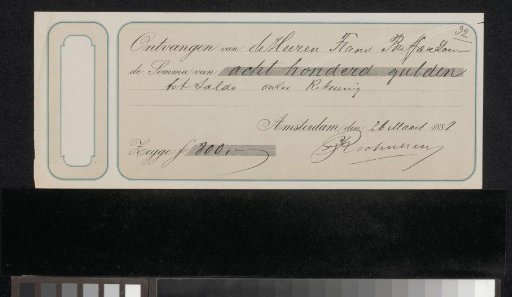 32
Ontvangen van de Heeren Frans Buffa & Zonen
de Somma van acht honderd gulden
tot Saldo onzer Rekening
Amsterdam, den 26 Maart 1888
Zegge f 800,-
Rochussen